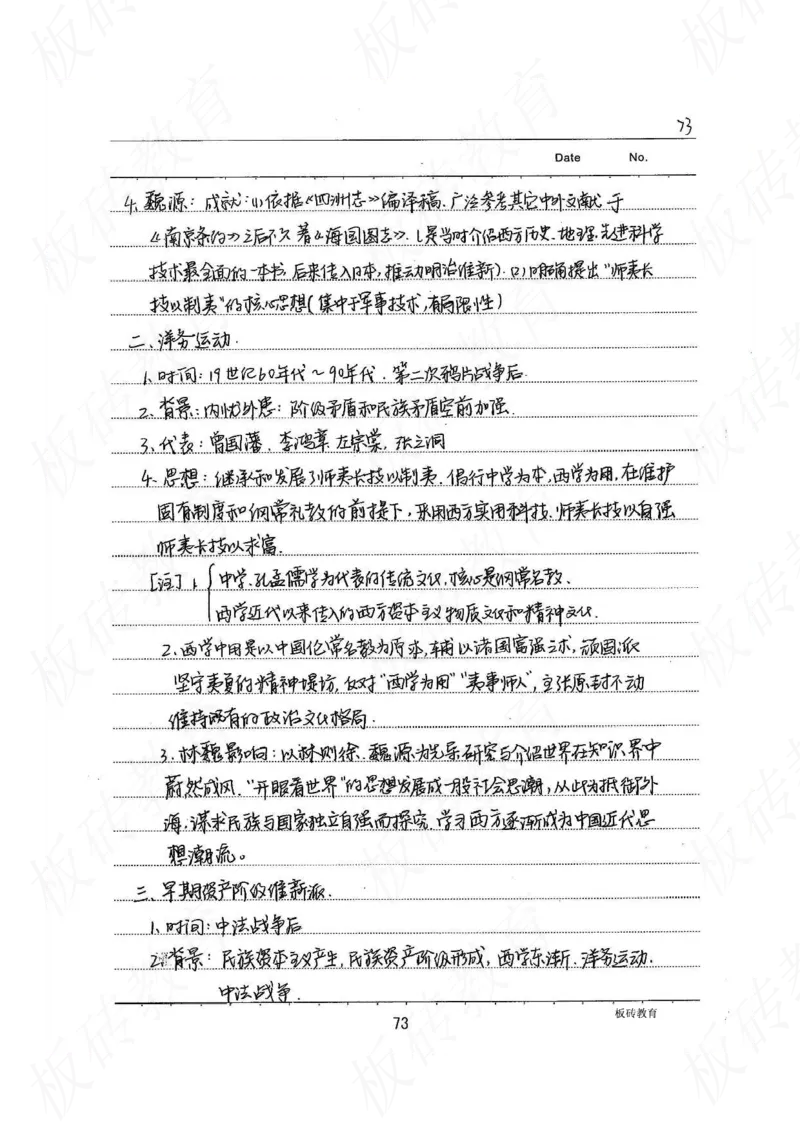 73
Date No.
4、魏源：成就：(1)依据《四洲志》编译稿、广泛参考其它中外文献于
《南京条约》之后不久著《海国图志》.(是当时介绍西方历史、地理、先进科学
技术最全面的一本书,后来传入日本,推动明治维新).(2)明确提出"师夷长
技以制夷"的核心思想(集中于军事技术,有局限性)
二、洋务运动.
1、时间：19世纪60年代～90年代.第二次鸦片战争后.
2、背景：内忧外患：阶级矛盾和民族矛盾空前加强.
3、代表：曾国藩、李鸿章 左宗棠,张之洞
4、思想：继承和发展了师夷长技以制夷.倡行中学为本,西学为用,在维护
固有制度和纲常礼教的前提下,采用西方实用科技.师夷长技以自强
师夷长技以求富.
[注]1、中学、孔孟儒学为代表的传统文化,核心是纲常名教、
西学近代以来传入的西方资本主义物质文化和精神文化.
2.西学中用是以中国伦常名教为原本,辅以诸国富强之术,顽固派
坚守夷夏的精神堤坊,反对"西学为用""夷事师人",主张原封不动
维持既有的政治文化格局.
3.林魏影响：以林则徐、魏源为先导研究与介绍世界在知识界中
蔚然成风."开眼看世界"的思想发展成一股社会思潮,从此为抵御外
海、谋求民族与国家独立自强而探究、学习西方逐渐成为中国近代思
想潮流。
三、早期资产阶级维新派.
1、时间：中法战争后
2、背景：民族资本主义产生,民族资产阶级形成,西学东渐.洋务运动.
中法战争.
73
板砖教育